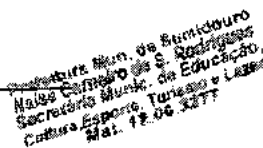 Prefeitura Mun. de Sumidouro
Carneiro da S. Rodrigues
Secretário Munic. de Educação,
Cultura, Esporte, Turismo e Lazer
Mat.